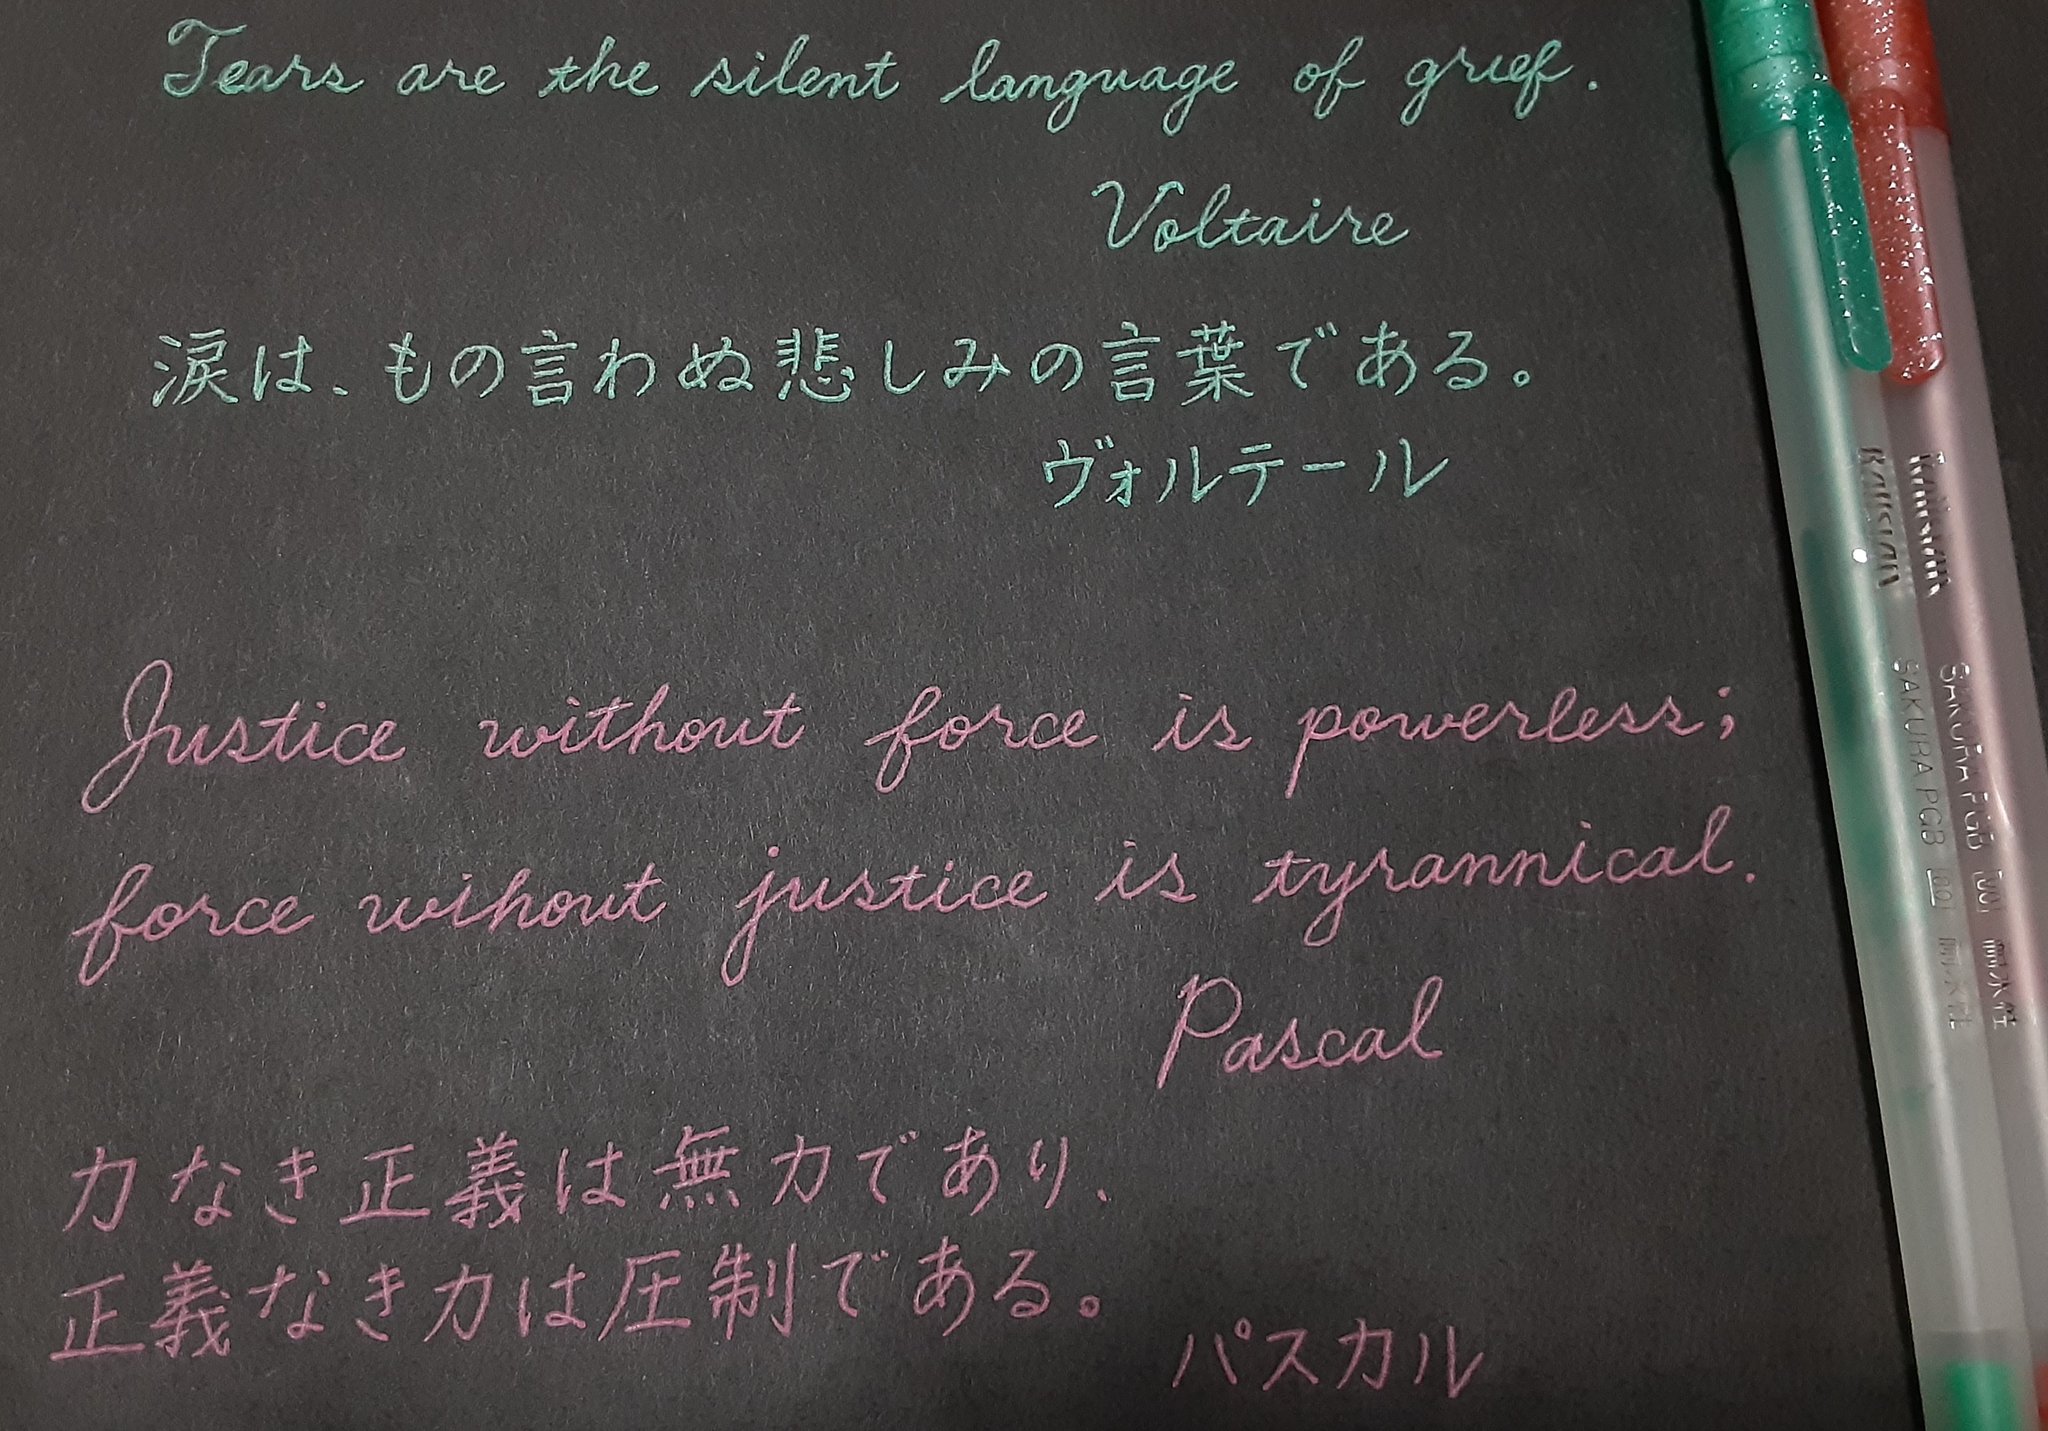 Tears are the silent language of grief.
Voltaire
涙は、もの言わぬ悲しみの言葉である。
ヴォルテール
Justice without force is powerless;
force wihout justice is tyrannical.
Pascal
力なき正義は無力であり、
正義なき力は圧制である。
パスカル
Ballsign
Ballsign
SAKURA PGB
SAKURA PGB